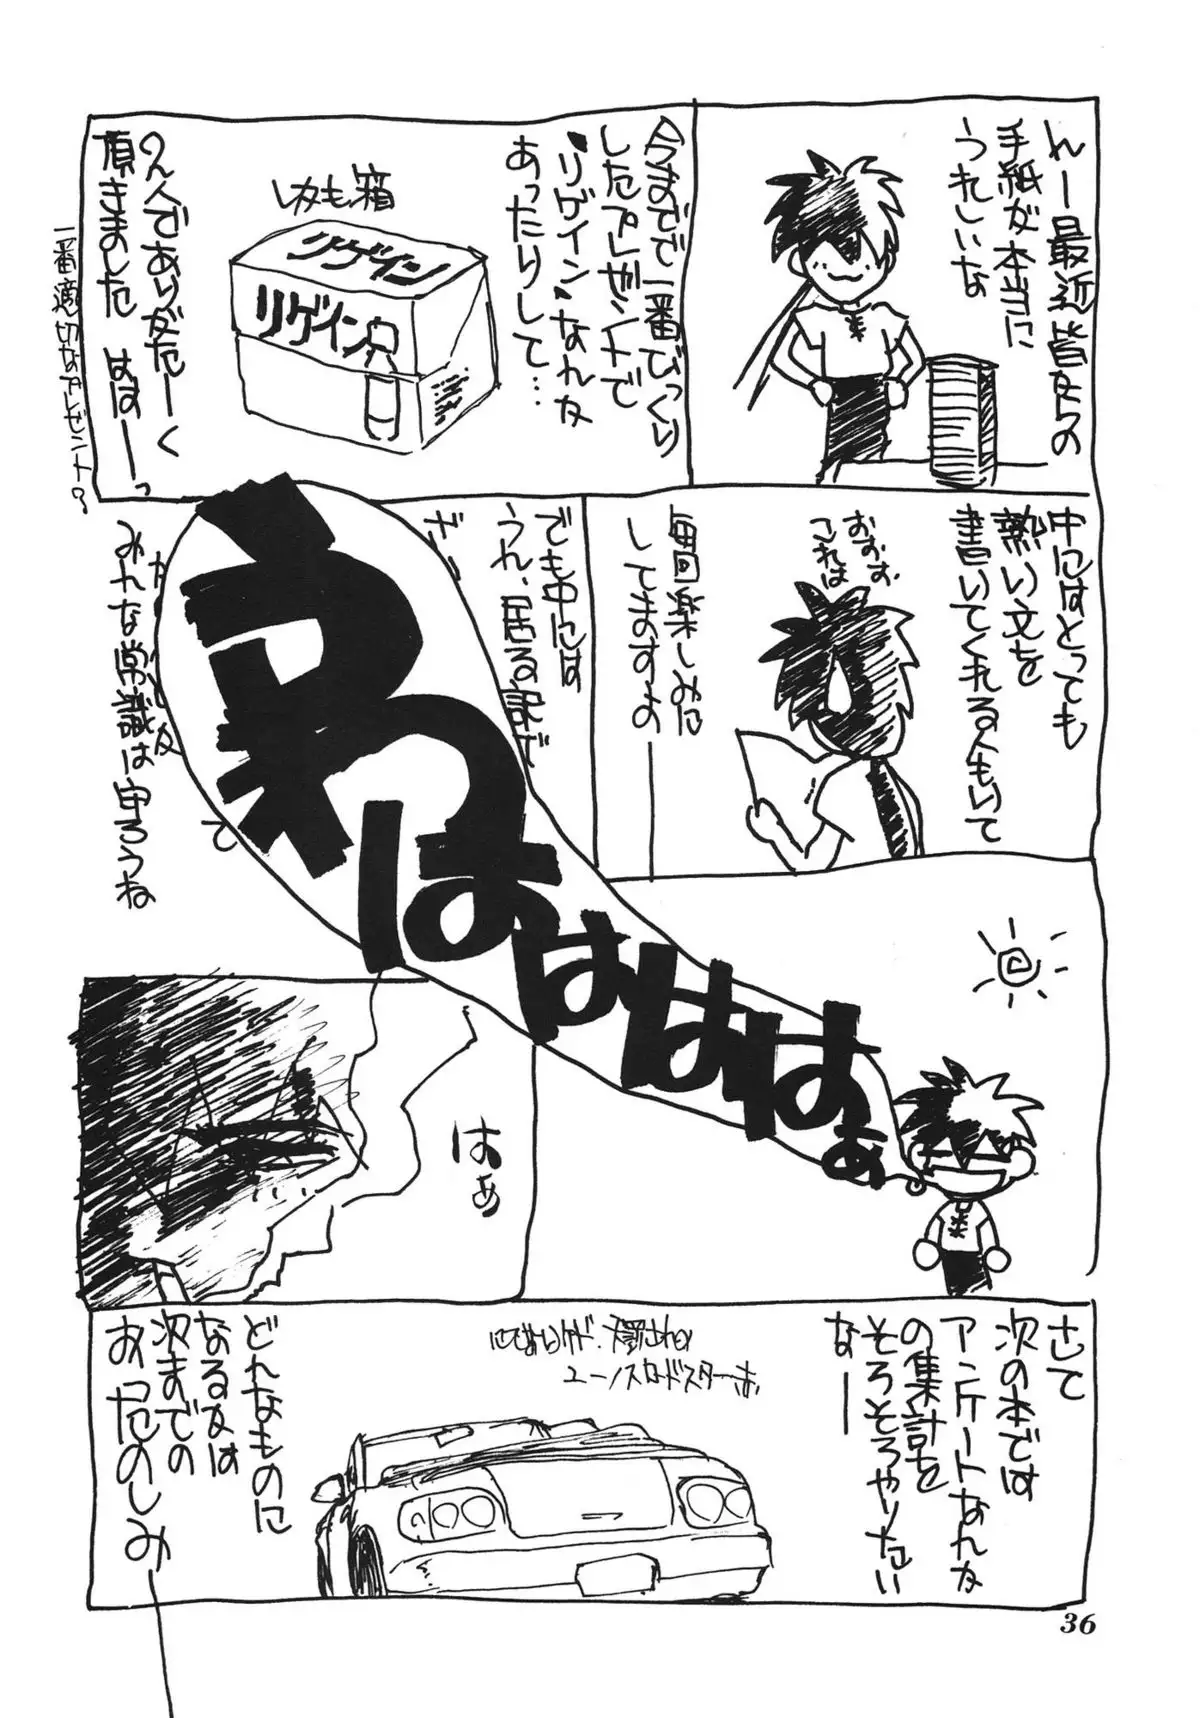 んー最近皆さんの
手紙が本当に
うれしいな
今までで一番びっくり
したプレゼントで
"リゲイン"なんな
あったりして…
しかも、箱
リゲイン
リゲイン
のんでありがたーく
頂きました はすーっ
一番適切なプレゼント?
中にはとっても
熱い文を
書いてくれる人もいて
おおお
これは
毎回楽しみに
してますよのー
でも中には
うれ、居る訳で
ざ
みんな常識は守ろうね
て
わはははははぁ
はぁ
さて
次の本では
アンケートなんな
の集計を
そろそろやりたい
なー
にてないケド、
ユーノスロードスターさ、
どんなものに
なるなは
次までの
おったのしみー
36